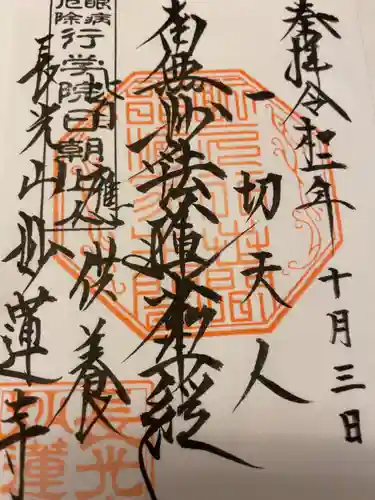 奉拝 令和二年
十月三日
一切天人
南無妙法蓮華経
皆應供養
眼病
厄除
行学院日朝上人
長光山妙蓮寺